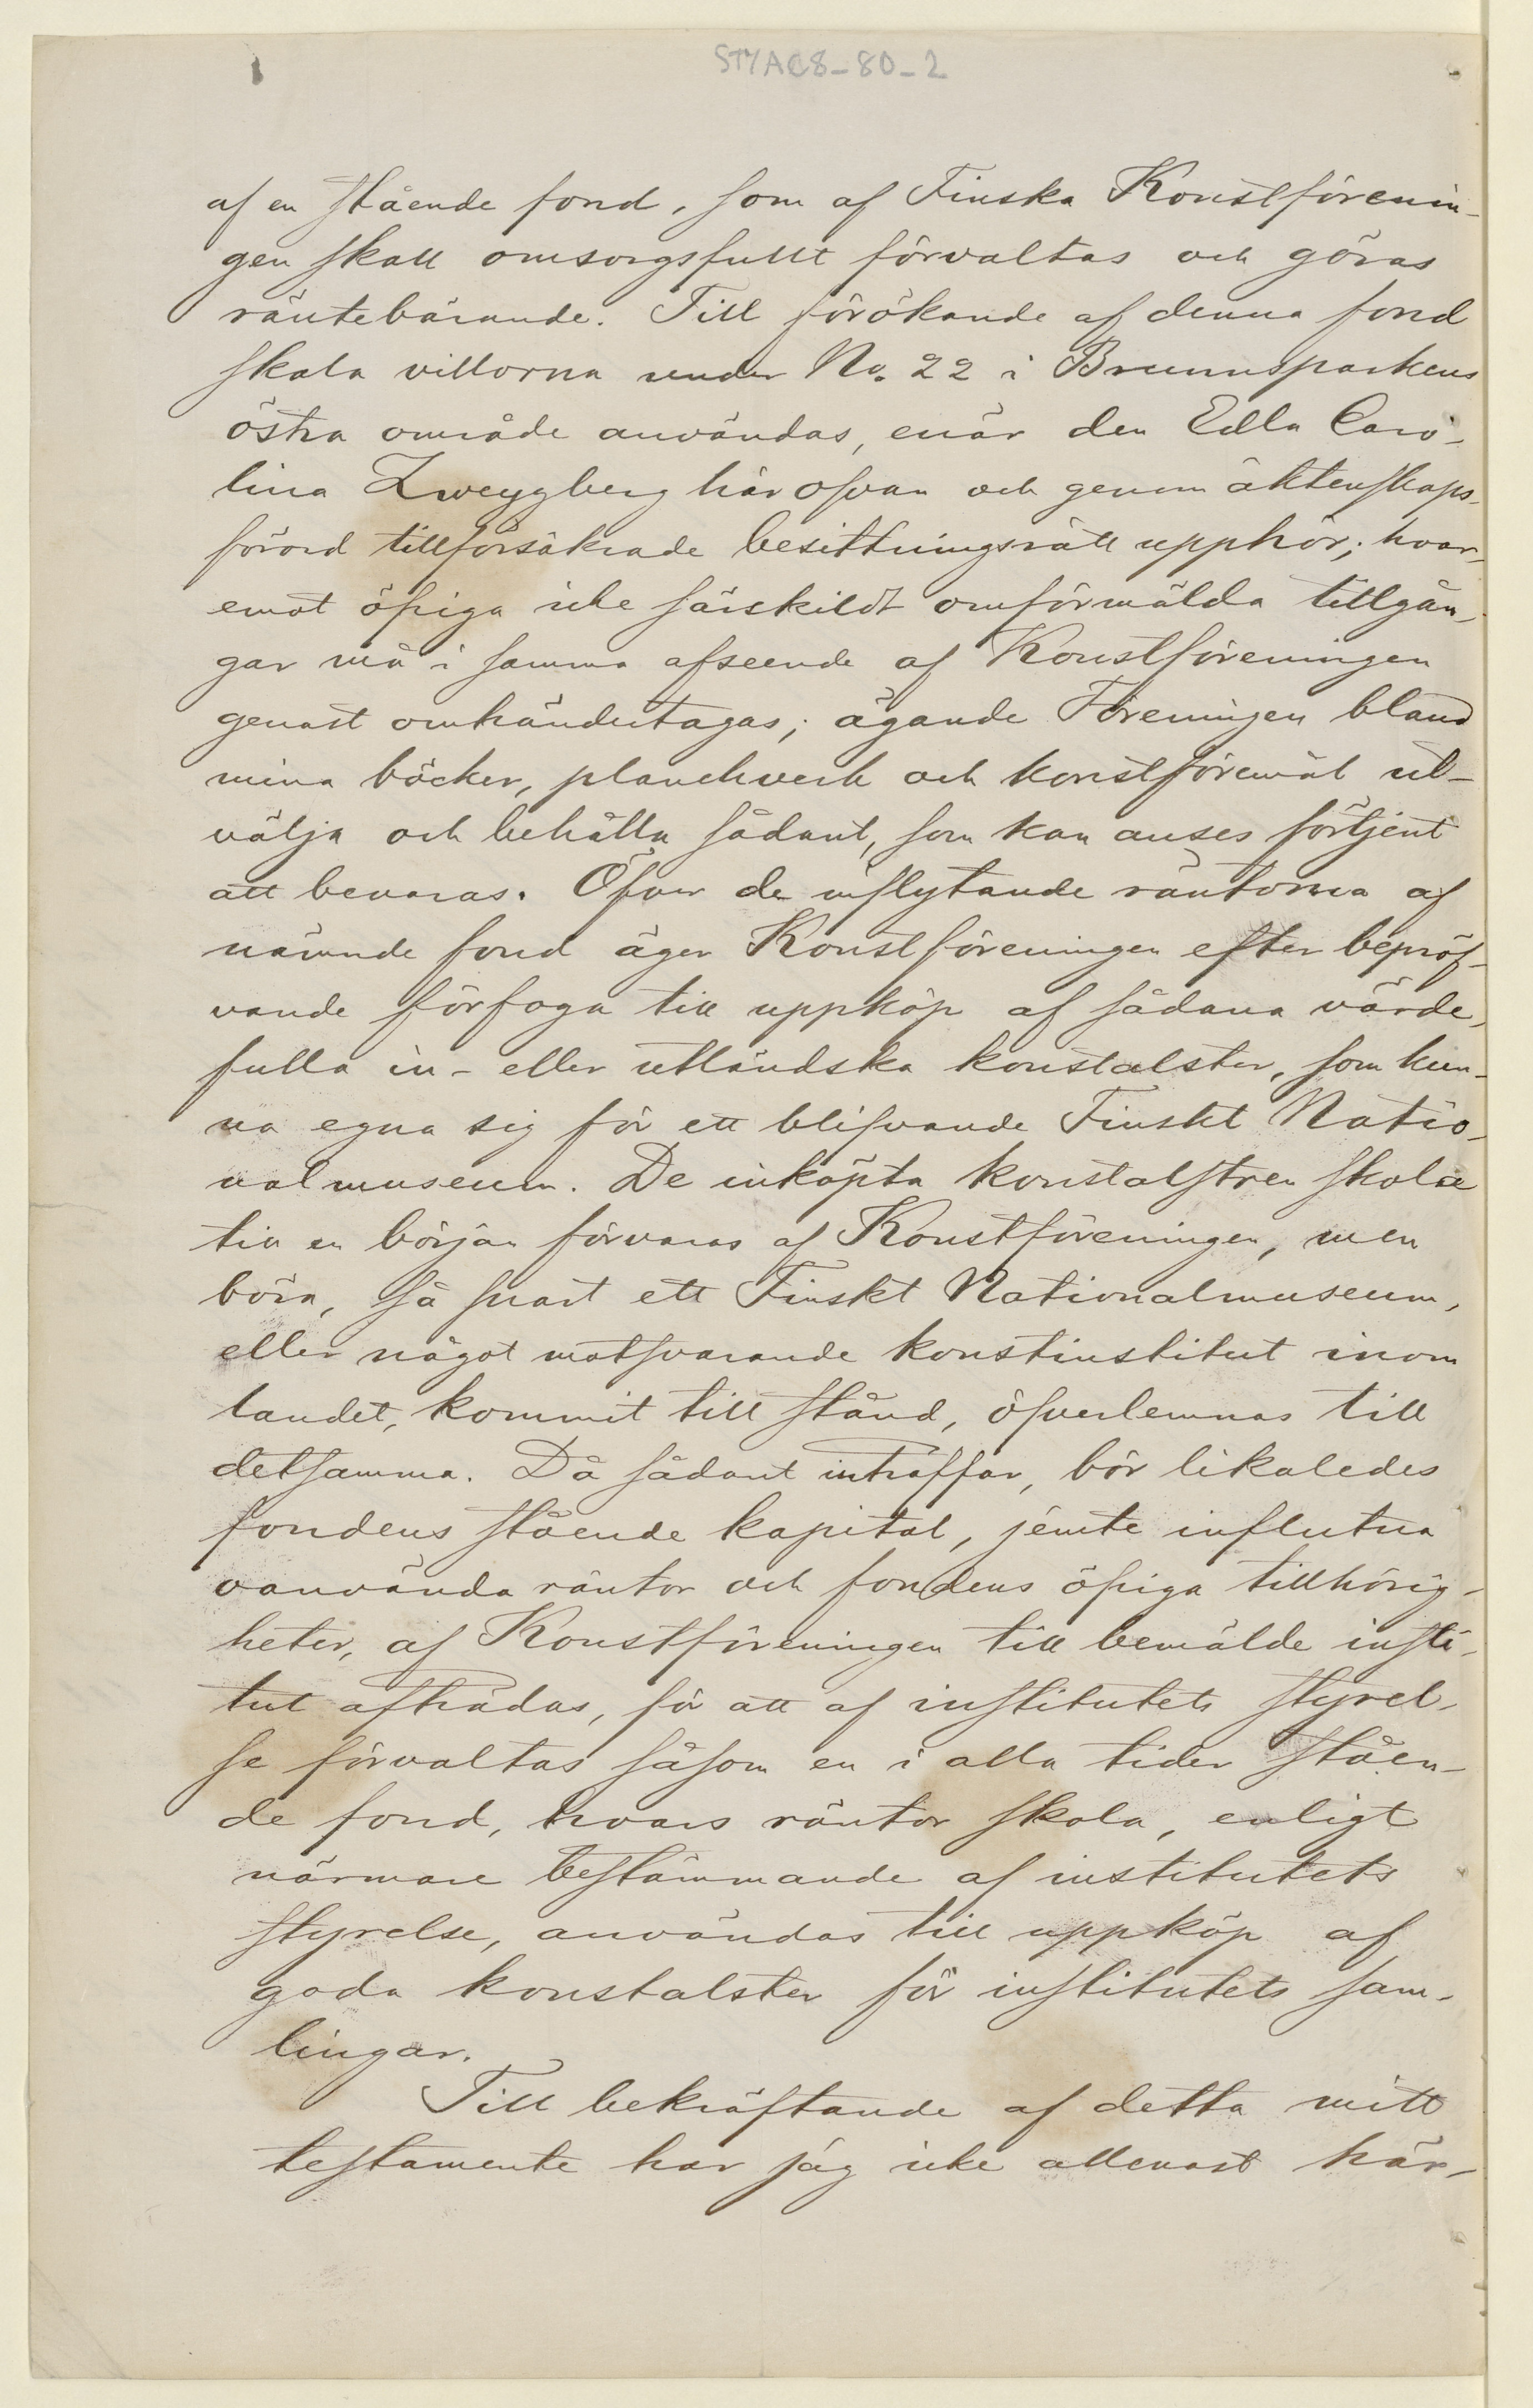 STYAC8-80-2
af en stående fond, som af Finska Konstförenin-
gen skall omsorgsfullt förvaltas och göras
räntebärande. Till förökande af denna fond
skola villorna under No. 22 i Brunnsparkens
östra område användas, enär den Edla Caro-
lina Zweygberg härofvan och genom äktenskaps-
förord tillförsäkrade besittningsrätt upphör; hvar-
emot öfriga icke särskildt omförmälda tillgån-
gar må i samma afseende af Konstföreningen
genast omhändertagas; ägande Föreningen bland
mina böcker, planchverk och konstföremål ut-
välja och behålla sådant, som kan anses förtjent
att bevaras. Öfver de inflytande räntorna af
nämnde fond äger Konstföreningen efter bepröf-
vande förfoga till uppköp af sådana värde-
fulla in- eller utländska konstalster, som kun-
na egna sig för ett blifvande Finskt Natio-
nalmuseum. De inköpta konstalstren skola
till en början förvaras af Konstföreningen, men
böra, så snart ett Finskt Nationalmuseum,
eller något motsvarande konstinstitut inom
landet, kommit till stånd, öfverlemnas till
detsamma. Då sådant inträffar, bör likaledes
fondens stående kapital, jemte influtna
oanvända räntor och fondens öfriga tillhörig-
heter, af Konstföreningen till bemälde insti-
tut afträdas, för att af institutets styrel-
se förvaltas såsom en i alla tider ståen-
de fond, hvars räntor skola, enligt
närmare bestämmande af institutets
styrelse, användas till uppköp af
goda konstalster för institutets sam-
lingar.
Till bekräftande af detta mitt
testamente har jag icke allenast här-